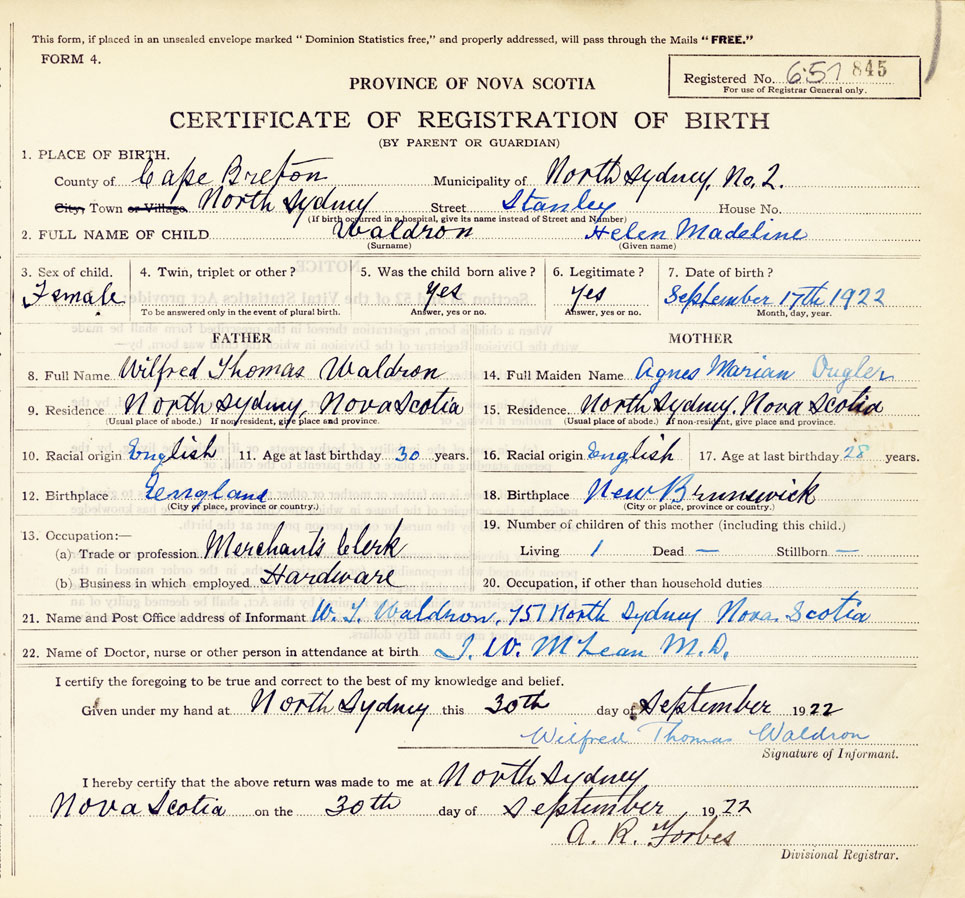 This form, if placed in an unsealed envelope marked " Dominion Statistics free," and properly addressed, will pass through the Mails "FREE."
FORM 4.
PROVINCE OF NOVA SCOTIA
Registered No. 657 845
For use of Registrar General only.
CERTIFICATE OF REGISTRATION OF BIRTH
(BY PARENT OR GUARDIAN)
1. PLACE OF BIRTH.
County of Cape Breton Municipality of North Sydney, No. 2.
City, Town or Village North Sydney Street Stanley House No.
(If birth occurred in a hospital, give its name instead of Street and Number)
2. FULL NAME OF CHILD Waldron Helen Madeline
(Surname) (Given name)
3. Sex of child. 4. Twin, triplet or other? 5. Was the child born alive? 6. Legitimate? 7. Date of birth?
Female Yes Yes September 17th 1922
To be answered only in the event of plural birth. Answer, yes or no. Answer, yes or no. Month, day, year.
FATHER MOTHER
8. Full Name Wilfred Thomas Waldron 14. Full Maiden Name Agnes Marian Dugler
9. Residence North Sydney, Nova Scotia 15. Residence North Sydney. Nova Scotia
(Usual place of abode.) If non-resident, give place and province. (Usual place of abode.) If non-resident, give place and province.
10. Racial origin English 11. Age at last birthday 30 years. 16. Racial origin English 17. Age at last birthday 28 years.
12. Birthplace England 18. Birthplace New Brunswick
(City or place, province or country.) (City or place, province or country.)
13. Occupation:— 19. Number of children of this mother (including this child.)
(a) Trade or profession Merchant's Clerk Living 1 Dead — Stillborn —
(b) Business in which employed Hardware 20. Occupation, if other than household duties
21. Name and Post Office address of Informant W. T. Waldron, 757 North Sydney Nova Scotia
22. Name of Doctor, nurse or other person in attendance at birth J. W. McLean M.D.
I certify the foregoing to be true and correct to the best of my knowledge and belief.
Given under my hand at North Sydney this 30th day of September 1922
Wilfred Thomas Waldron
Signature of Informant.
I hereby certify that the above return was made to me at North Sydney
Nova Scotia on the 30th day of September 1922
A. R. Forbes
Divisional Registrar.